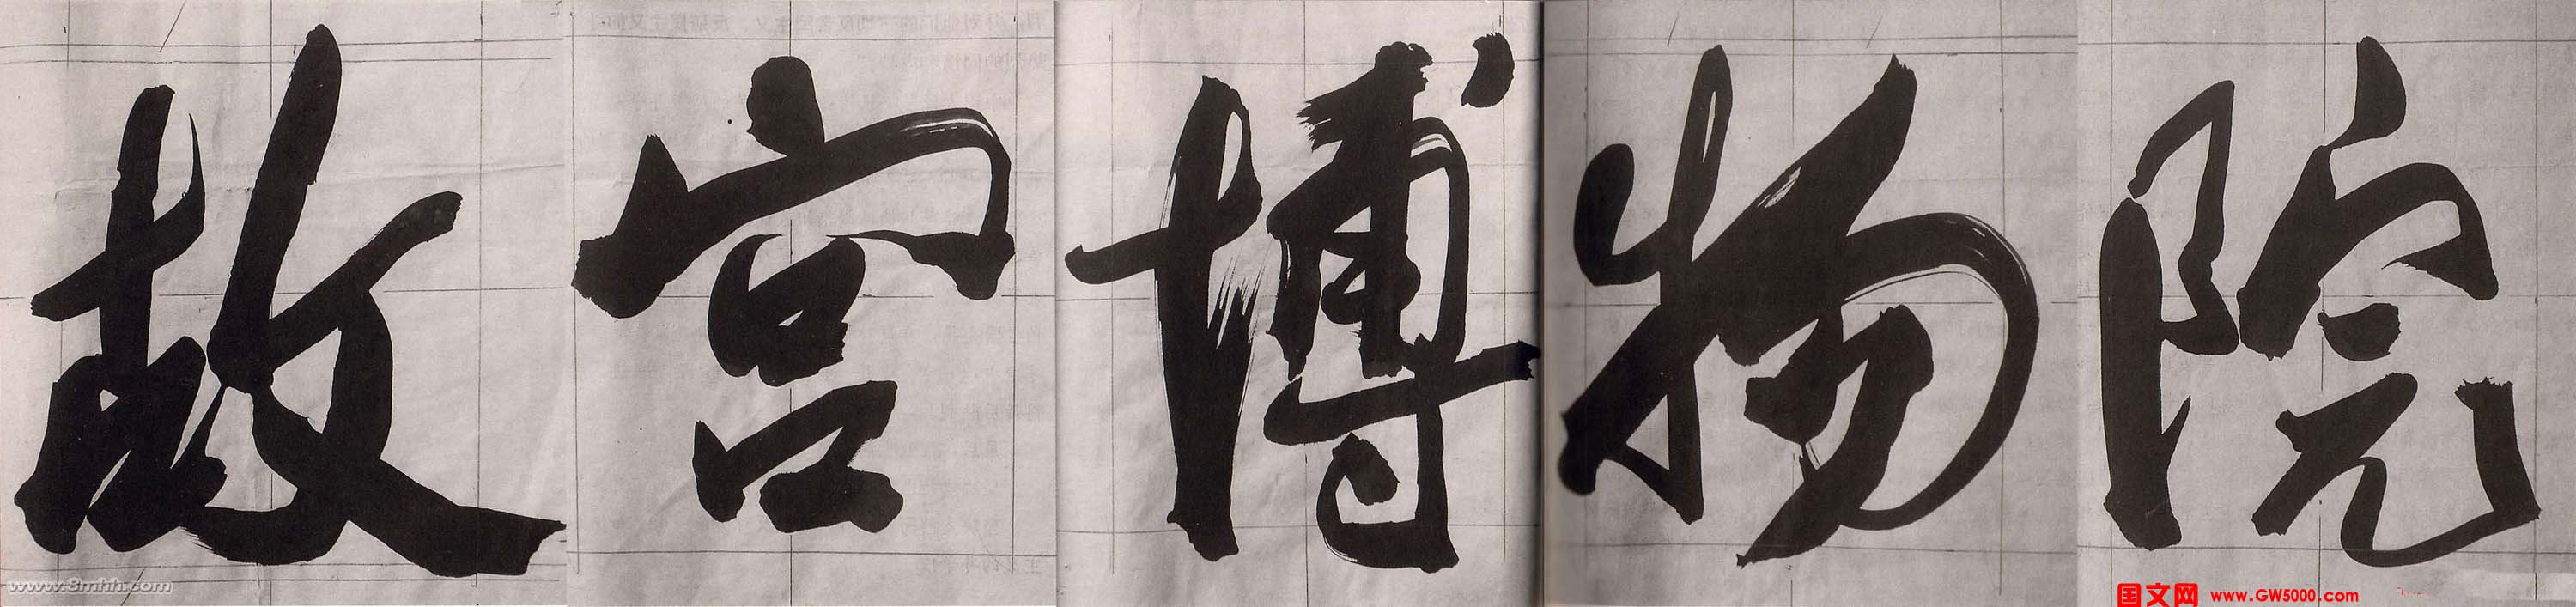 故宫博物院
www.8mhh.com
国文网 www.GW5000.com